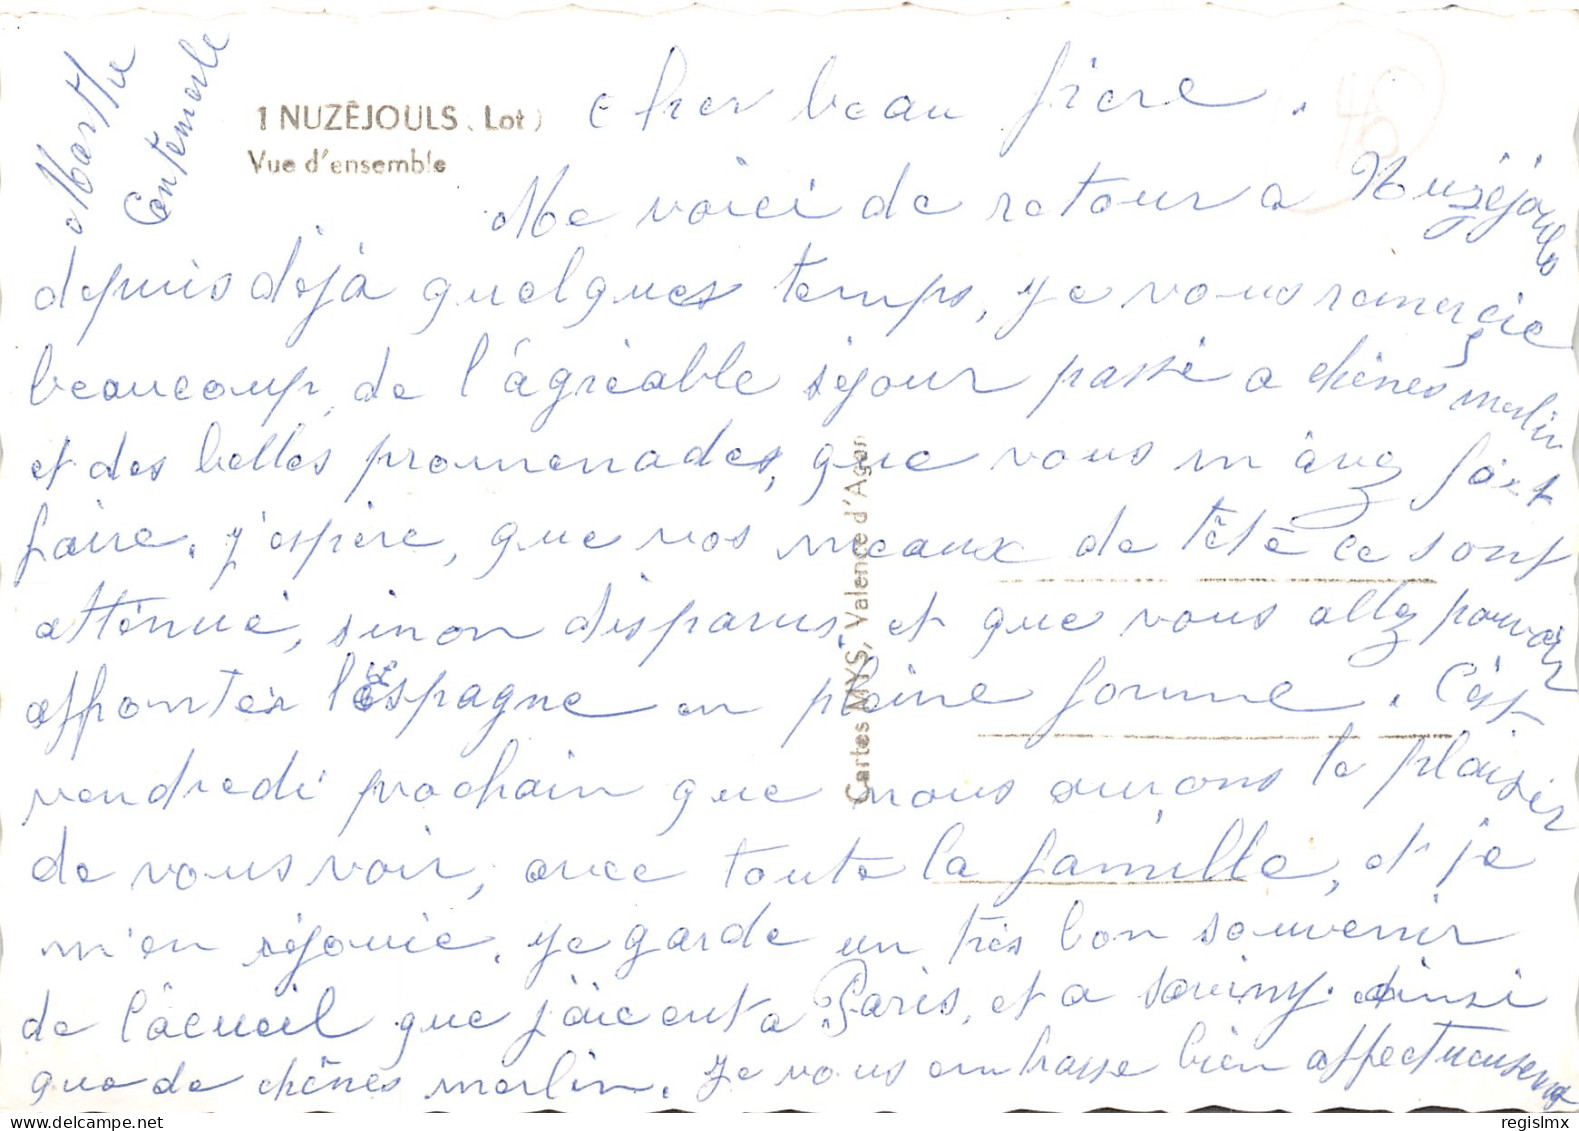 1 NUZÊJOULS (Lot)
Vue d'ensemble
Cher beau frère.
Me voici de retour a Nuzéjouls
depuis déjà quelques temps, je vous remercie
beaucoup, de l'agréable séjour passé a chênes merlin
et des belles promenades, que vous m'avez fait
faire. j'espère, que vos meaux de tête ce sont
atténué, sinon disparus, et que vous allez pouvoir
affronter l'espagne en pleine forme. C'est
vendredi prochain que nous aurons le plaisir
de vous voir, avec toute la famille, et je
m'en réjouie. je garde un très bon souvenir
de l'acueil que j'aie eut a Paris, et a saviny. ainsi
que de chênes merlin. Je vous embrasse bien affectueuseme
Marthe
Contemerle
Cartes MYS, Valence d'Agen
46
regislmx